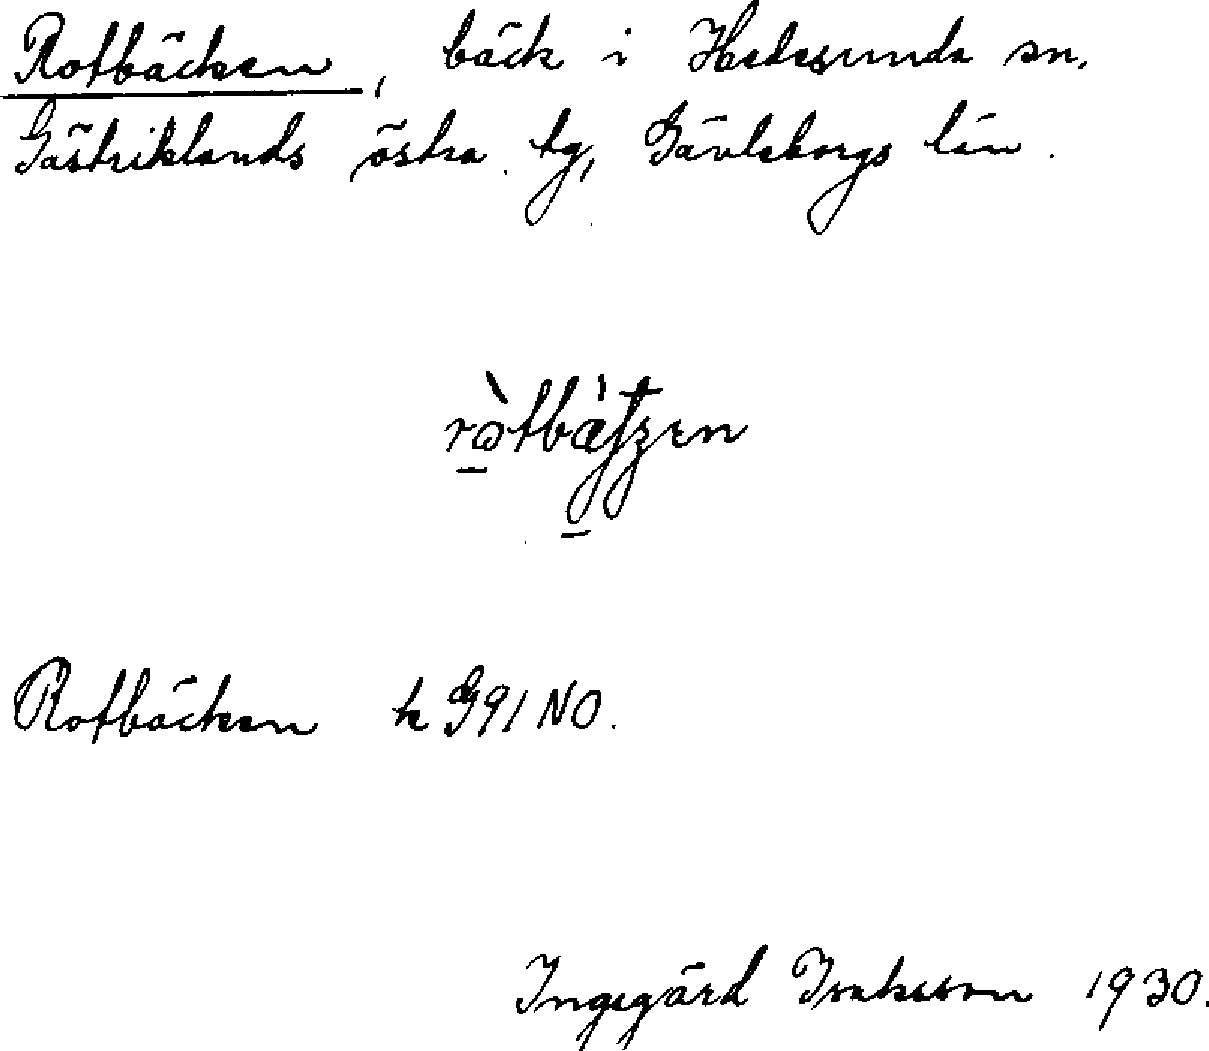 Rotbäcken, bäck i Hedesunda sn.
Gästriklands östra tg, Gävleborgs län.
Rotbäcken k G91 NO.
Ingegärd Isakson 1930.